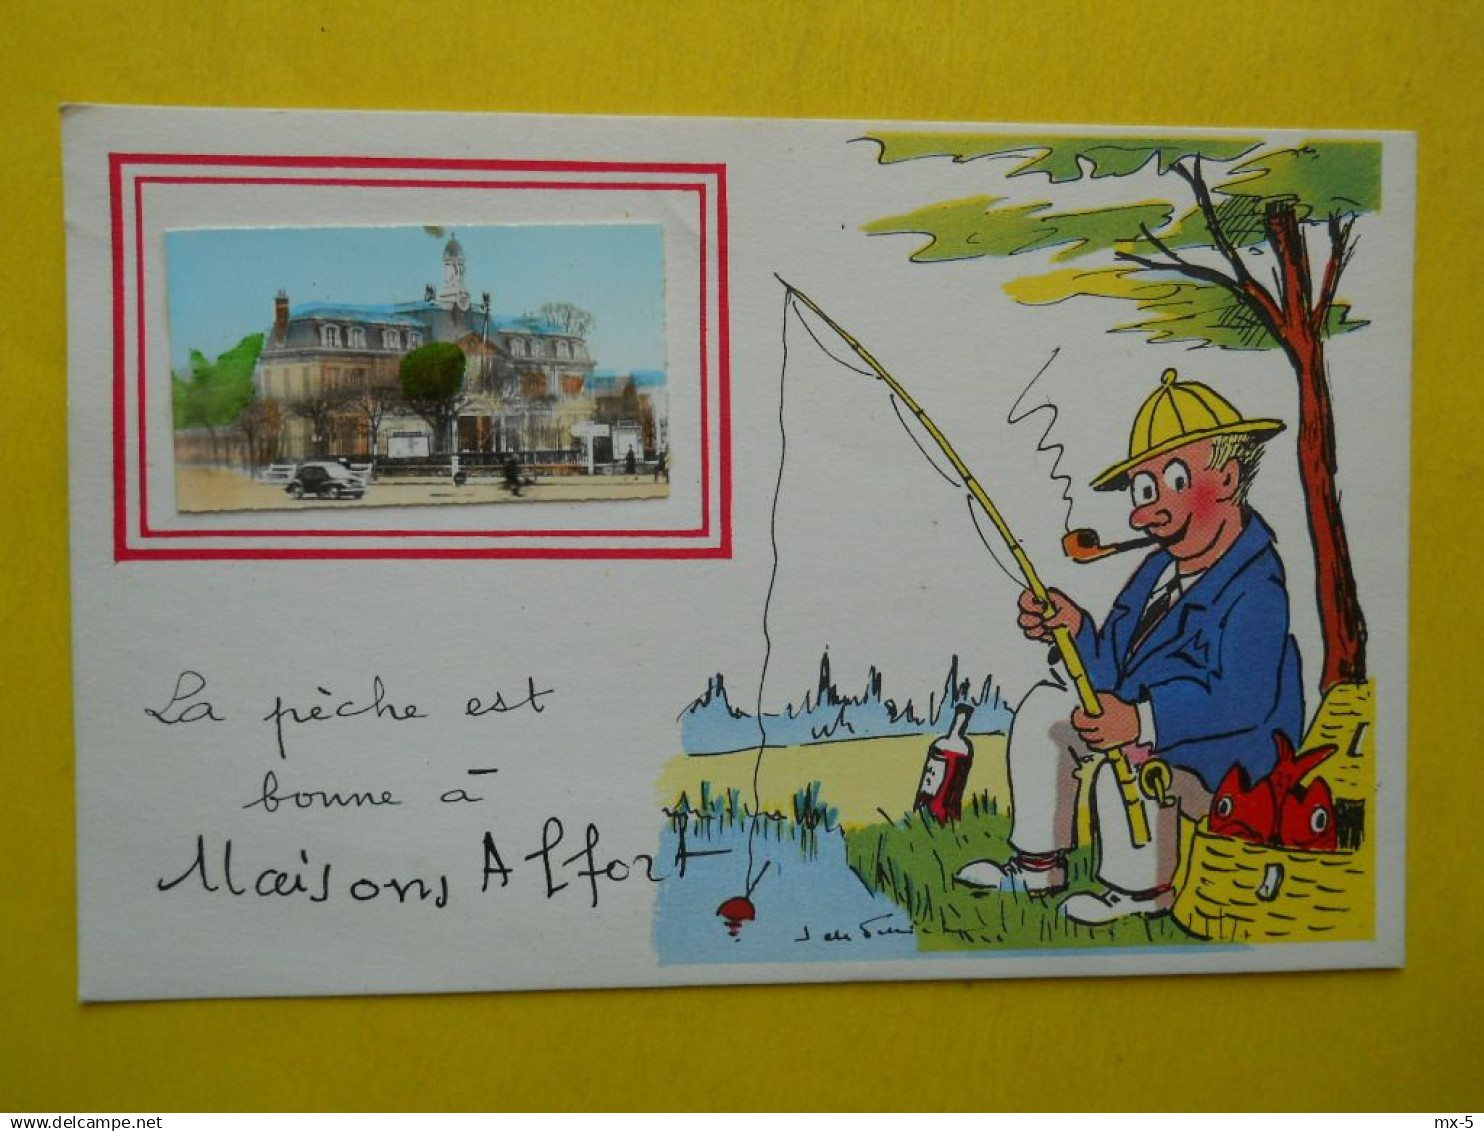 La pèche est
bonne à
Maisons Alfort
delcampe.net
mx-5